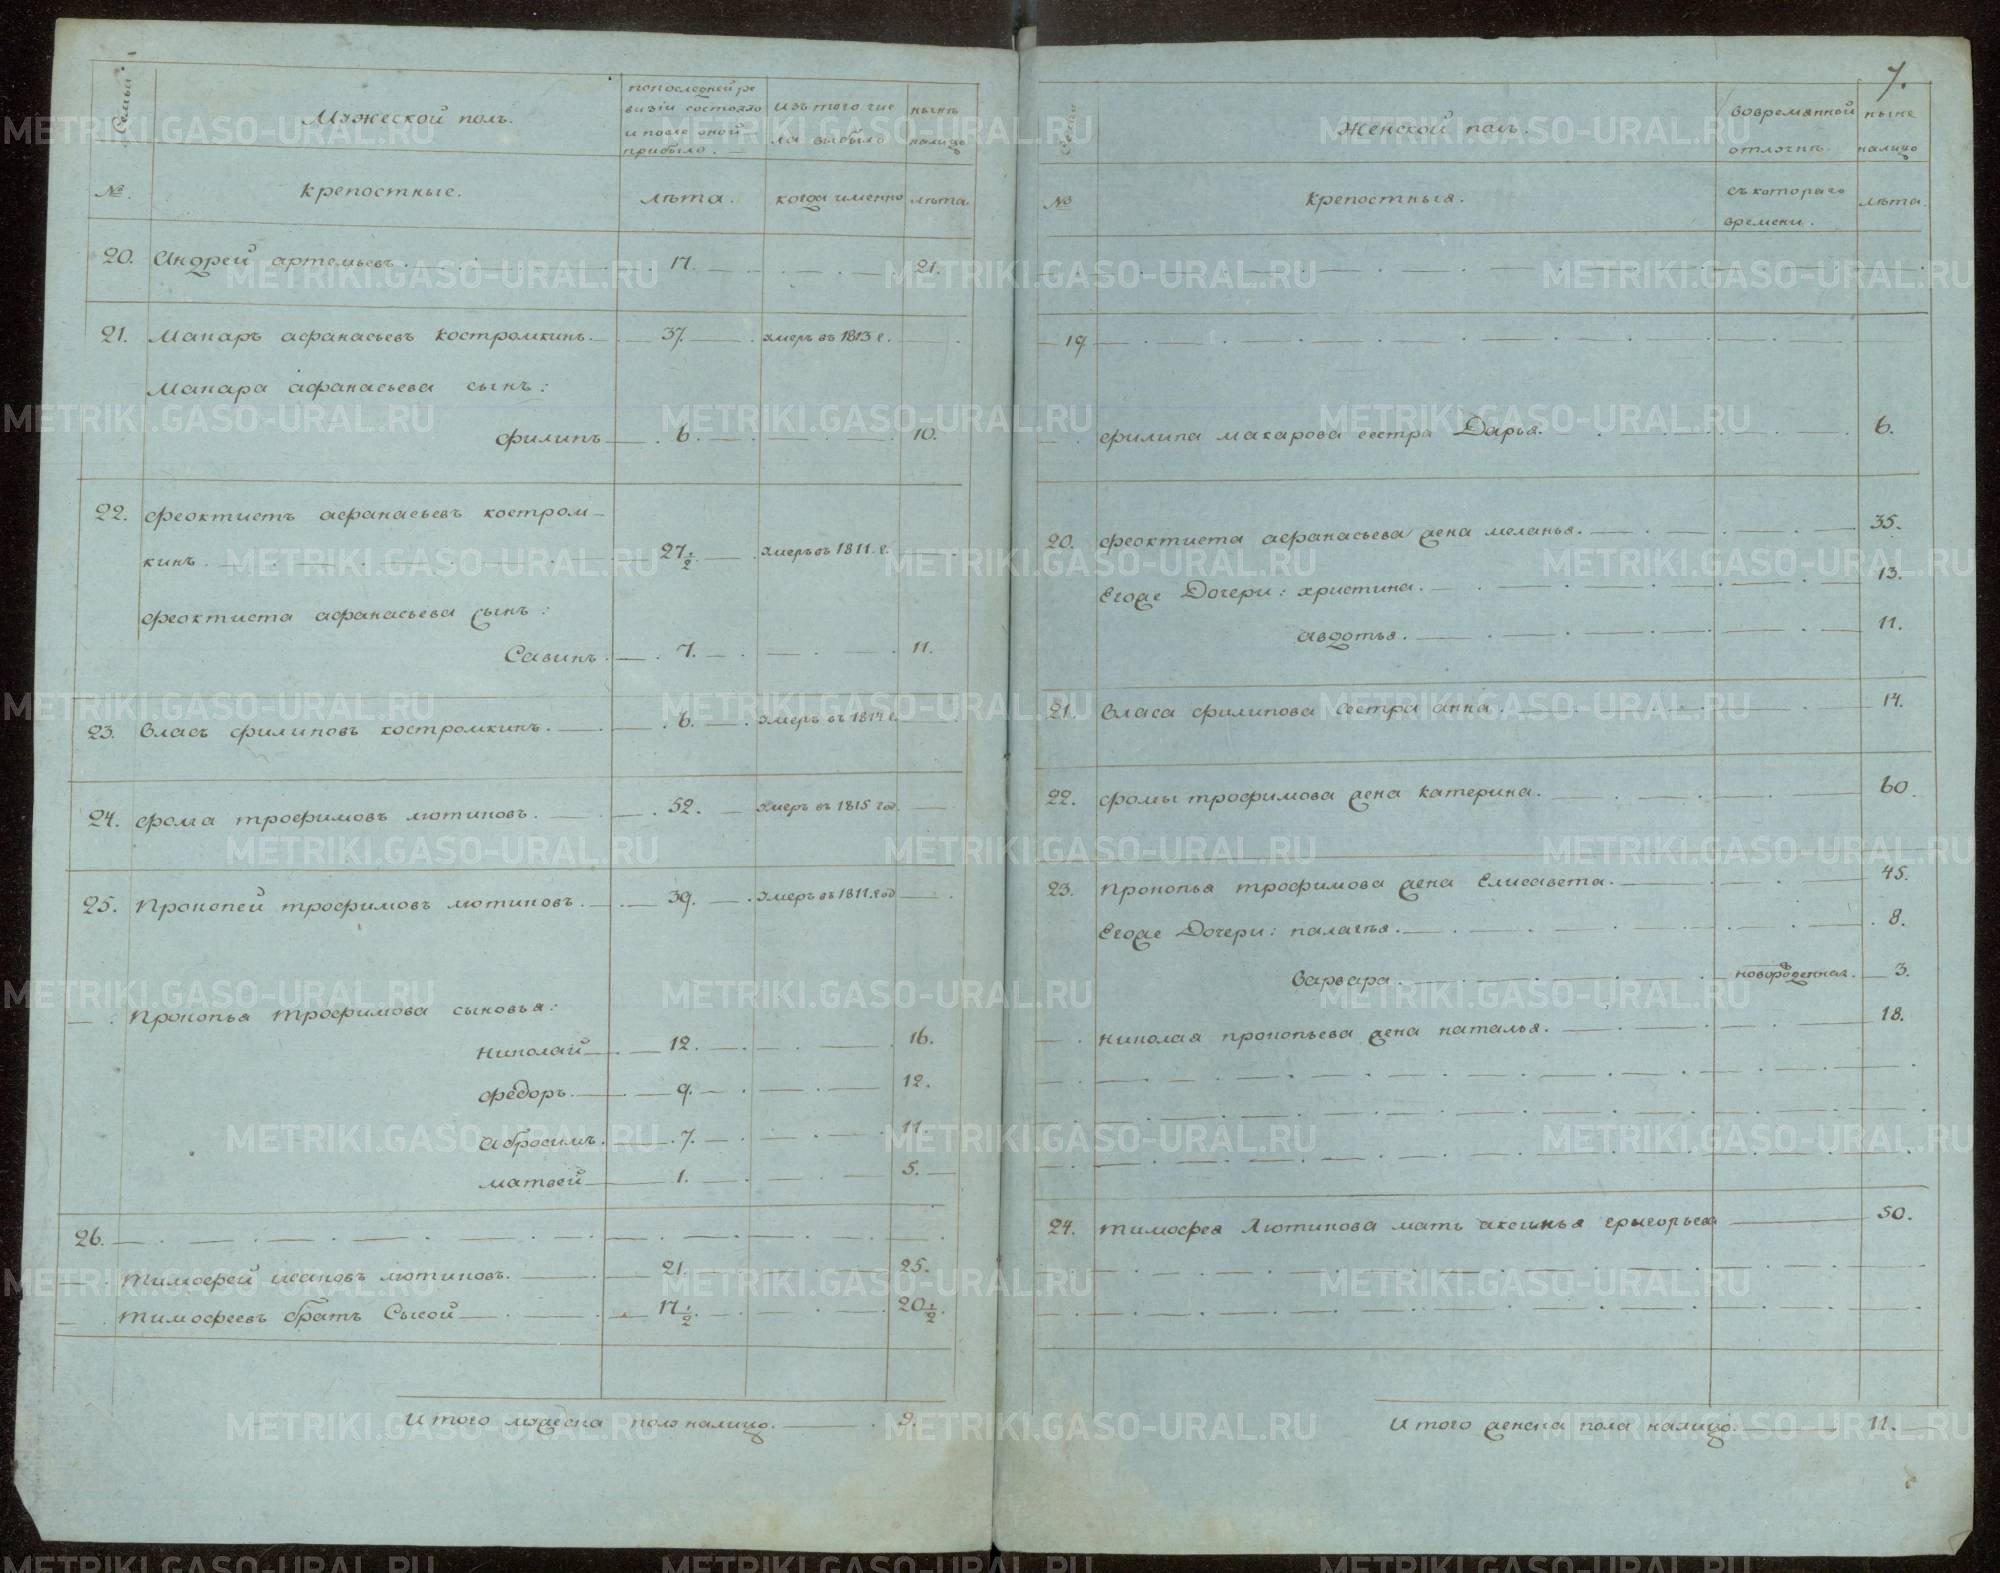 Семьи
Мужеской полъ.
попоследней ре
визіи состояло
и после оной
прибыло.
изътого чис
ла выбыло
нынѣ
налицо
№.
крепостные.
лѣта.
когда именно
лѣта.
20. Андрей артемьевъ. 17. 21.
21. Макаръ афанасьевъ костромкинъ. 37. умеръ въ 1813 г.
Макара афанасьева сынъ:
филипъ 6. 10.
22. феоктистъ афанасьевъ костром-
кинъ. 27 1/2. умеръ въ 1811. г.
феоктиста афанасьева сынъ:
Савинъ. 7. 11.
23. Власъ филиповъ костромкинъ. 6. умеръ въ 1814 г.
24. фома трофимовъ лютиковъ. 52. умеръ въ 1815 год.
25. Прокопей трофимовъ лютиковъ. 39. умеръ въ 1811. год
Прокопья трофимова сыновья:
николай 12. 16.
федоръ. 9. 12.
абросимъ. 7. 11.
матвей 1. 5.
26.
тимофей исаковъ лютиковъ. 21. 25.
тимофеевъ братъ Сысой 17 1/2. 20 1/2.
Итого мужеска полу налицо. 9.
7.
Семьи
Женской полъ.
вовремянной
отлучкѣ.
ныне
налицо
№
крепостныя.
съкотораго
времени.
лѣта.
19
филипа макарова сестра Дарья. 6.
20. феоктиста афанасьева жена меланья. 35.
Егоже Дочери: христина. 13.
авдотья. 11.
21. Власа филипова сестра анна. 14.
22. фомы трофимова жена катерина. 60.
23. прокопья трофимова жена Елисавета. 45.
Егоже Дочери: палагѣя. 8.
варвара. новорожденная. 3.
николая прокопьева жена наталья. 18.
24. тимофея лютикова мать аксинья григорьева 50.
Итого женска пола налицо. 11.
METRIKI.GASO-URAL.RU